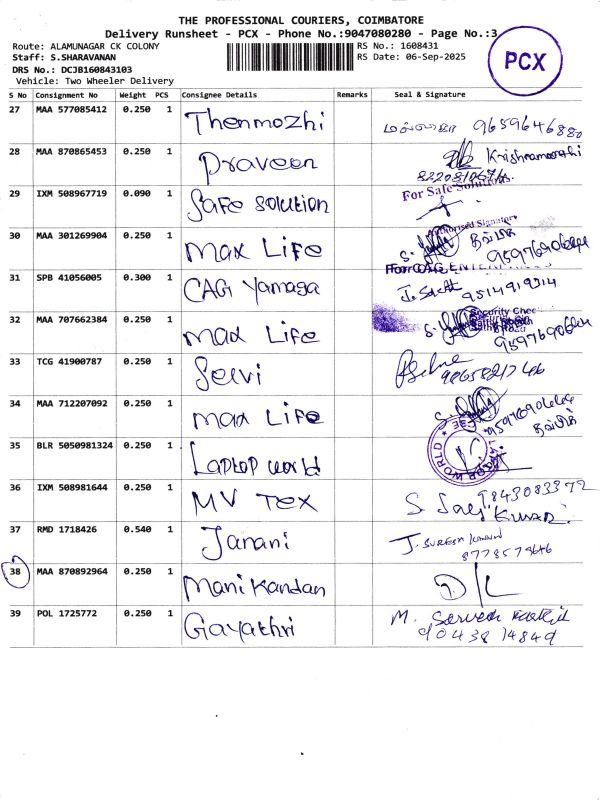 THE PROFESSIONAL COURIERS, COIMBATORE
Delivery Runsheet - PCX - Phone No.:9047080280 - Page No.:3
Route: ALAMUNAGAR CK COLONY
RS No.: 1608431
Staff: S.SHARAVANAN
RS Date: 06-Sep-2025
PCX
DRS No.: DCJB160843103
Vehicle: Two Wheeler Delivery
S No Consignment No Weight PCS Consignee Details Remarks Seal & Signature
27 MAA 577085412 0.250 1 Thenmozhi 9659646880
28 MAA 870865453 0.250 1 Praveen Krishnamoorthi
29 IXM 508967719 0.090 1 Safe solution For Safe Solutions.
Authorised Signatory
30 MAA 301269904 0.250 1 Max Life
31 SPB 41056005 0.300 1 CAG Yamaga 9514919314
32 MAA 707662384 0.250 1 Max Life
33 TCG 41900787 0.250 1 Selvi
34 MAA 712207092 0.250 1 Max Life
35 BLR 5050981324 0.250 1 Laptop world
36 IXM 508981644 0.250 1 MV Tex
37 RMD 1718426 0.540 1 Janani
38 MAA 870892964 0.250 1 Manikandan D/L
39 POL 1725772 0.250 1 Gayathri M.